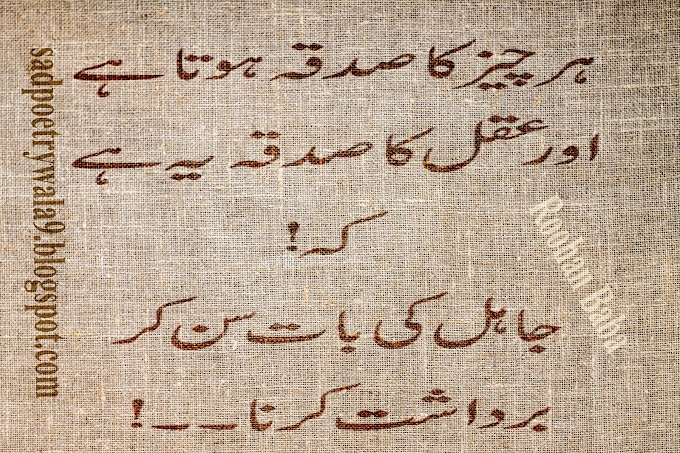 ہر چیز کا صدقہ ہوتا ہے
اور عقل کا صدقہ یہ ہے
کہ!
جاہل کی بات سن کر
برداشت کرنا۔۔۔!
Roohan Baba
sadpoetrywala9.blogspot.com